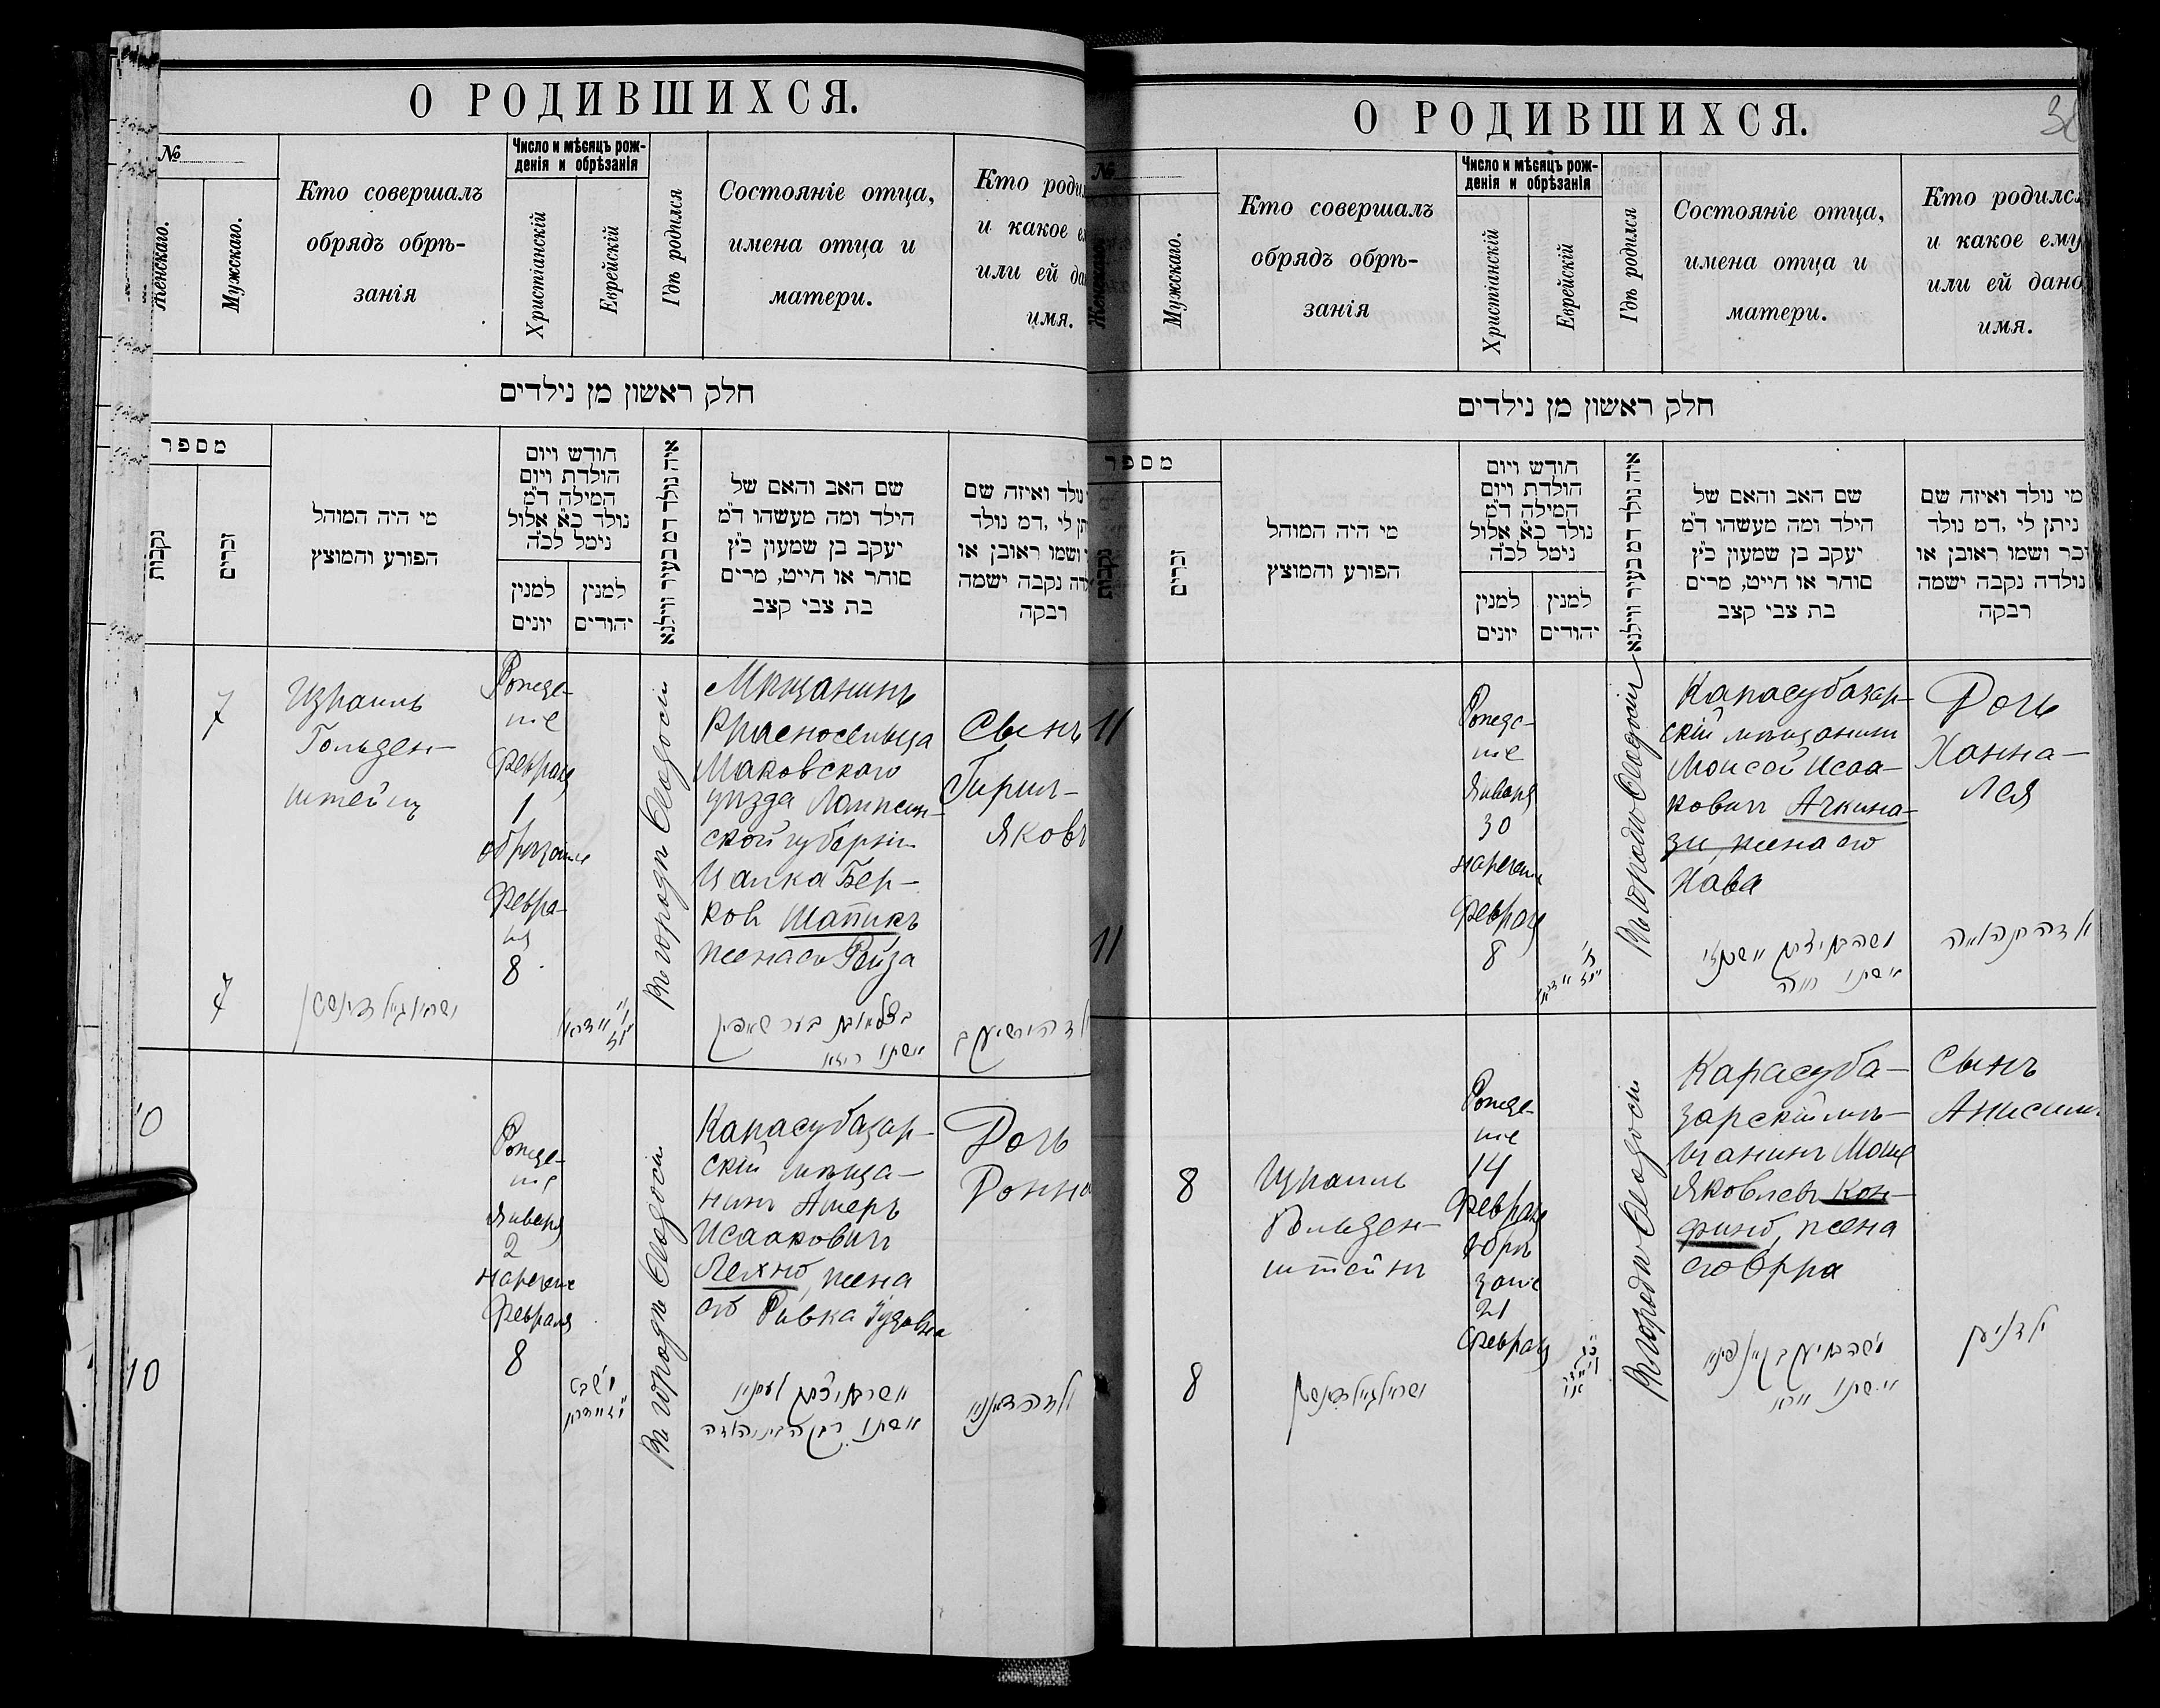 О РОДИВШИХСЯ.
№
Женскаго.
Мужскаго.
Кто совершалъ
обрядъ обрѣ-
занія
Число и мѣсяцъ рож-
денія и обрѣзанія
Христіанскій
Еврейскій
Гдѣ родился
Состояніе отца,
имена отца и
матери.
Кто
и какое
или ей
имя.
חלק ראשון מן נילדים
מספר
נקבות
זכרים
מי היה המוהל
הפורע והמוצץ
חודש ויום
הולדת ויום
המילה ד״מ
נולד כ״א אלול
נימל לכ״ה
למנין
יונים
למנין
יהודים
איה נולד דמ בעיר ווילנא
שם האב והאם של
הילד ומה מעשהו ד״מ
יעקב בן שמעון כ״ץ
סוחר או חייט, מרים
בת צבי קצב
נולד ואיזה שם
לי, דמ נולד
ושמו ראובן או
נקבה ישמה
רבקה
7
Израиль
Гольден-
штейнъ
Рожде-
ніе
Февраля
1
обрѣзаніе
Февра-
ля
8
Въ городѣ Ѳеодосіи
Мѣщанинъ
Красносельца
Маковскаго
уѣзда Ломжин-
ской губерніи
Ицалка Бер-
ков Шапикъ
жена его Рейза
Сынъ
Гирш-
Яковъ
7
אשתו
10
Рожде-
ніе
Января
2
нареченіе
Февраля
8
Въ городѣ Ѳеодосіи
Карасубазар-
скій мѣща-
нинъ Ашеръ
Исааковичъ
Лехно, жена
его Ривка Іудовна
Дочь
Донна
10
אשתו
О РОДИВШИХСЯ.
№
Мужскаго.
Кто совершалъ
обрядъ обрѣ-
занія
Число и мѣсяцъ рож-
денія и обрѣзанія
Христіанскій
Еврейскій
Гдѣ родился
Состояніе отца,
имена отца и
матери.
Кто родился
и какое ему
или ей дано
имя.
חלק ראשון מן נילדים
מספר
נקבות
זכרים
מי היה המוהל
הפורע והמוצץ
חודש ויום
הולדת ויום
המילה ד״מ
נולד כ״א אלול
נימל לכ״ה
למנין
יונים
למנין
יהודים
איה נולד דמ בעיר ווילנא
שם האב והאם של
הילד ומה מעשהו ד״מ
יעקב בן שמעון כ״ץ
סוחר או חייט, מרים
בת צבי קצב
מי נולד ואיזה שם
ניתן לי, דמ נולד
זכר ושמו ראובן או
נולדה נקבה ישמה
רבקה
11
Рожде-
ніе
Января
30
нареченіе
Февраля
8
Въ городѣ Ѳеодосіи
Карасубазар-
скій мѣщанинъ
Моисей Исаа-
ковичъ Ачкина-
зи, жена его
Хава
Дочь
Ханна-
Лея
11
אשתו חוה
8
Израиль
Гольден-
штейнъ
Рожде-
ніе
14
Февраля
Обрѣ
заніе
21
Февраля
Въ городѣ Ѳеодосіи
Карасуба-
зарскій мѣ-
щанинъ Моше
Яковлевъ Кон-
фино, жена
его Эрра
Сынъ
Анисимъ
8
אשתו